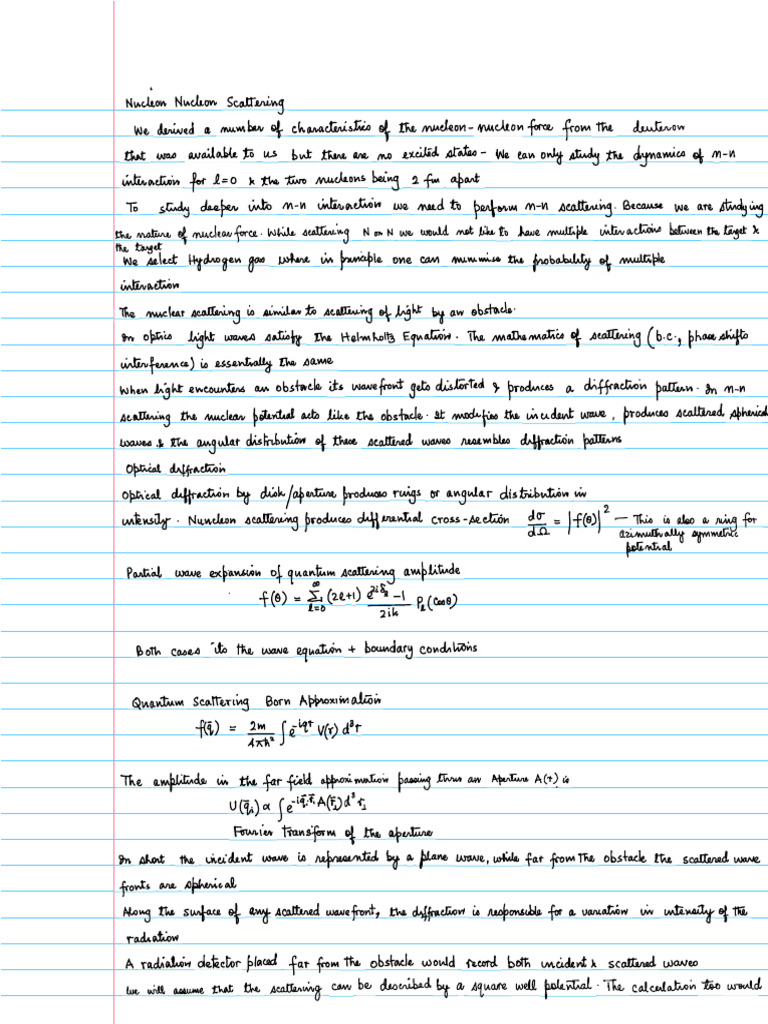 Nucleon Nucleon Scattering
We derived a number of characteristics of the nucleon-nucleon force from the deuteron
that was available to us but there are no excited states - We can only study the dynamics of n-n
interaction for l=0 & the two nucleons being 2 fm apart
To study deeper into n-n interaction we need to perform n-n scattering. Because we are studying
the nature of nuclear force. While scattering N on N we would not like to have multiple interactions between the target &
the target
We select Hydrogen gas where in principle one can minimise the probability of multiple
interaction
The nuclear scattering is similar to scattering of light by an obstacle.
In optics light waves satisfy the Helmholtz Equation. The mathematics of scattering (b.c., phase shifts
interference) is essentially the same
When light encounters an obstacle its wavefront gets distorted & produces a diffraction pattern. In n-n
scattering the nuclear potential acts like the obstacle. It modifies the incident wave, produces scattered spherical
waves & the angular distribution of these scattered waves resembles diffraction patterns
Optical diffraction
Optical diffraction by disk/aperture produces rings or angular distribution in
intensity. Nuncleon scattering produces differential cross-section dσ/dΩ = |f(θ)|² — This is also a ring for
azimuthally symmetric
potential
Partial wave expansion of quantum scattering amplitude
f(θ) = Σ_{l=0}^{∞} (2l+1) (e^{2iδ_l} - 1)/(2ik) P_l(cosθ)
Both cases its the wave equation + boundary conditions
Quantum Scattering Born Approximation
f(q̄) = 2m/(4πħ²) ∫ e^{-iqr} V(r) d³r
The amplitude in the far field approximation passing thru an Aperture A(r) is
U(q̄_i) ∝ ∫ e^{-iq̄.r̄_i} A(r̄_i) d³r_i
Fourier Transform of the aperture
In short the incident wave is represented by a plane wave, while far from the obstacle the scattered wave
fronts are spherical
Along the surface of any scattered wavefront, the diffraction is responsible for a variation in intensity of the
radiation
A radiation detector placed far from the obstacle would record both incident & scattered waves
We will assume that the scattering can be described by a square well potential. The calculation too would